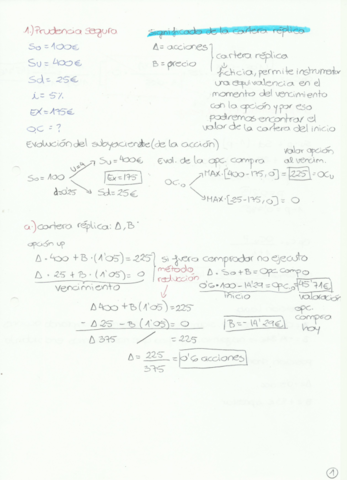 1) Prudencia Segura
significado de la cartera réplica
S0 = 100€
Su = 400€
Sd = 25€
i = 5%
EX = 175€
OC = ?
Δ = acciones
B = precio
cartera réplica
ficticia, permite instrumentar
una equivalencia en el
momento del vencimiento
con la opción y por eso
podremos encontrar el
valor de la cartera del inicio
Evolución del subyacente (de la acción)
S0 = 100
u=4
Su = 400€
EX = 175
d=0'25
Sd = 25€
Evol. de la opc. compra
valor opción
al vencim.
OC
MAX [400 - 175, 0] = 225
MAX [25 - 175, 0] = 0
a) cartera réplica: Δ, B
opción up
Δ · 400 + B · (1'05) = 225
Δ · 25 + B · (1'05) = 0
vencimiento
método
reducción
si fuera comprador no ejecuto
Δ · S0 + B = opc compra
0'6 · 100 - 14'29 = opc
45'71€
inicio
valoración
opc.
compra
hoy
Δ400 + B(1'05) = 225
- Δ25 - B(1'05) = 0
Δ 375 = 225
B = -14'29€
Δ = 225/375 = 0'6 acciones
1